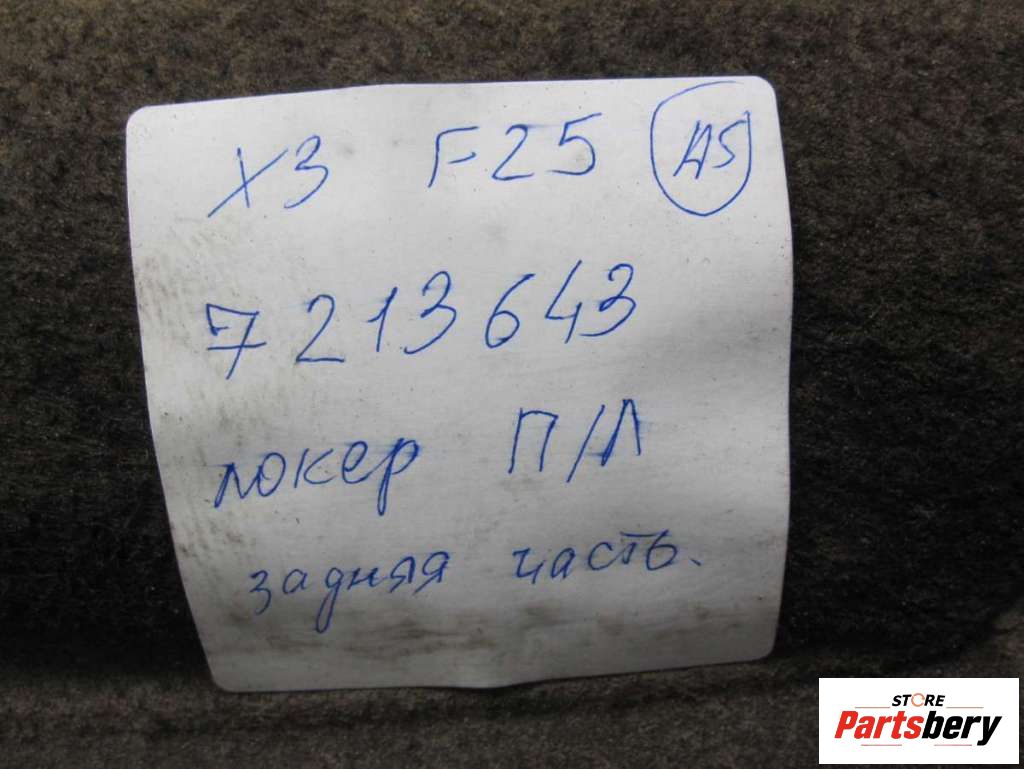 X3 F25
7213643
локер П/Л
задняя часть.
STORE
Partsbery